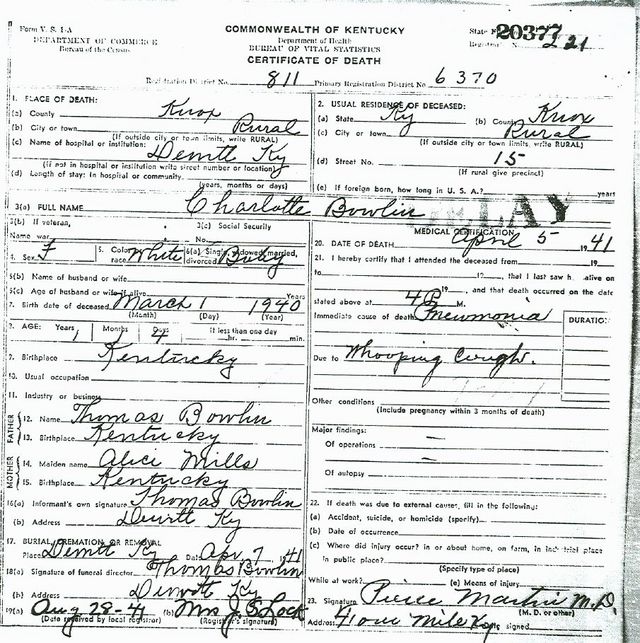 Form V. S. 1-A
DEPARTMENT OF COMMERCE
Bureau of the Census
COMMONWEALTH OF KENTUCKY
Department of Health
BUREAU OF VITAL STATISTICS
CERTIFICATE OF DEATH
State File 20377
Registrar's No. 221
Registration District No. 811 Primary Registration District No. 6370
1. PLACE OF DEATH:
(a) County Knox
(b) City or town Rural
(If outside city or town limits, write RURAL)
(c) Name of hospital or institution: Dewitt Ky
(If not in hospital or institution write street number or location)
(d) Length of stay: In hospital or community
(years, months or days)
2. USUAL RESIDENCE OF DECEASED:
(a) State Ky (b) County Knox
(c) City or town Rural
(If outside city or town limits, write RURAL)
(d) Street No. 15
(If rural give precinct)
(e) If foreign born, how long in U. S. A.? years
3(a) FULL NAME Charlotte Bowlin
DELAY
3(b) If veteran,
Name war
3(c) Social Security
No.
4. Sex F 5. Color or race White 6(a) Single, widowed, married, divorced Baby
6(b) Name of husband or wife
6(c) Age of husband or wife if alive Years
7. Birth date of deceased March 1 1940
(Month) (Day) (Year)
8. AGE: Years 1 Months 1 Days 4 If less than one day
hr. min.
9. Birthplace Kentucky
10. Usual occupation
11. Industry or business
FATHER
12. Name Thomas Bowlin
13. Birthplace Kentucky
MOTHER
14. Maiden name Alice Mills
15. Birthplace Kentucky
16(a) Informant's own signature Thomas Bowlin
(b) Address Dewitt Ky
17. BURIAL, CREMATION OR REMOVAL
Place Dewitt Ky Date Apr 7 1941
18(a) Signature of funeral director Thomas Bowlin
(b) Address Dewitt Ky
19(a) Aug 28-41 (b) Mrs J S Lock
(Date received by local registrar) (Registrar's signature)
MEDICAL CERTIFICATION
20. DATE OF DEATH April 5 1941
21. I hereby certify that I attended the deceased from 19
to 19, that I last saw h alive on
19, and that death occurred on the date
stated above at 4 P M.
Immediate cause of death Pneumonia
DURATION
Due to Whooping Cough.
Other conditions
(Include pregnancy within 3 months of death)
Major findings:
Of operations —
Of autopsy —
22. If death was due to external cause, fill in the following:
(a) Accident, suicide, or homicide (specify)
(b) Date of occurrence
(c) Where did injury occur? in or about home, on farm, in industrial place
in public place?
(Specify type of place)
While at work? (e) Means of injury
23. Signature Pierce Martin M.D.
(M. D. or other)
Address Flour Mile Ky signed